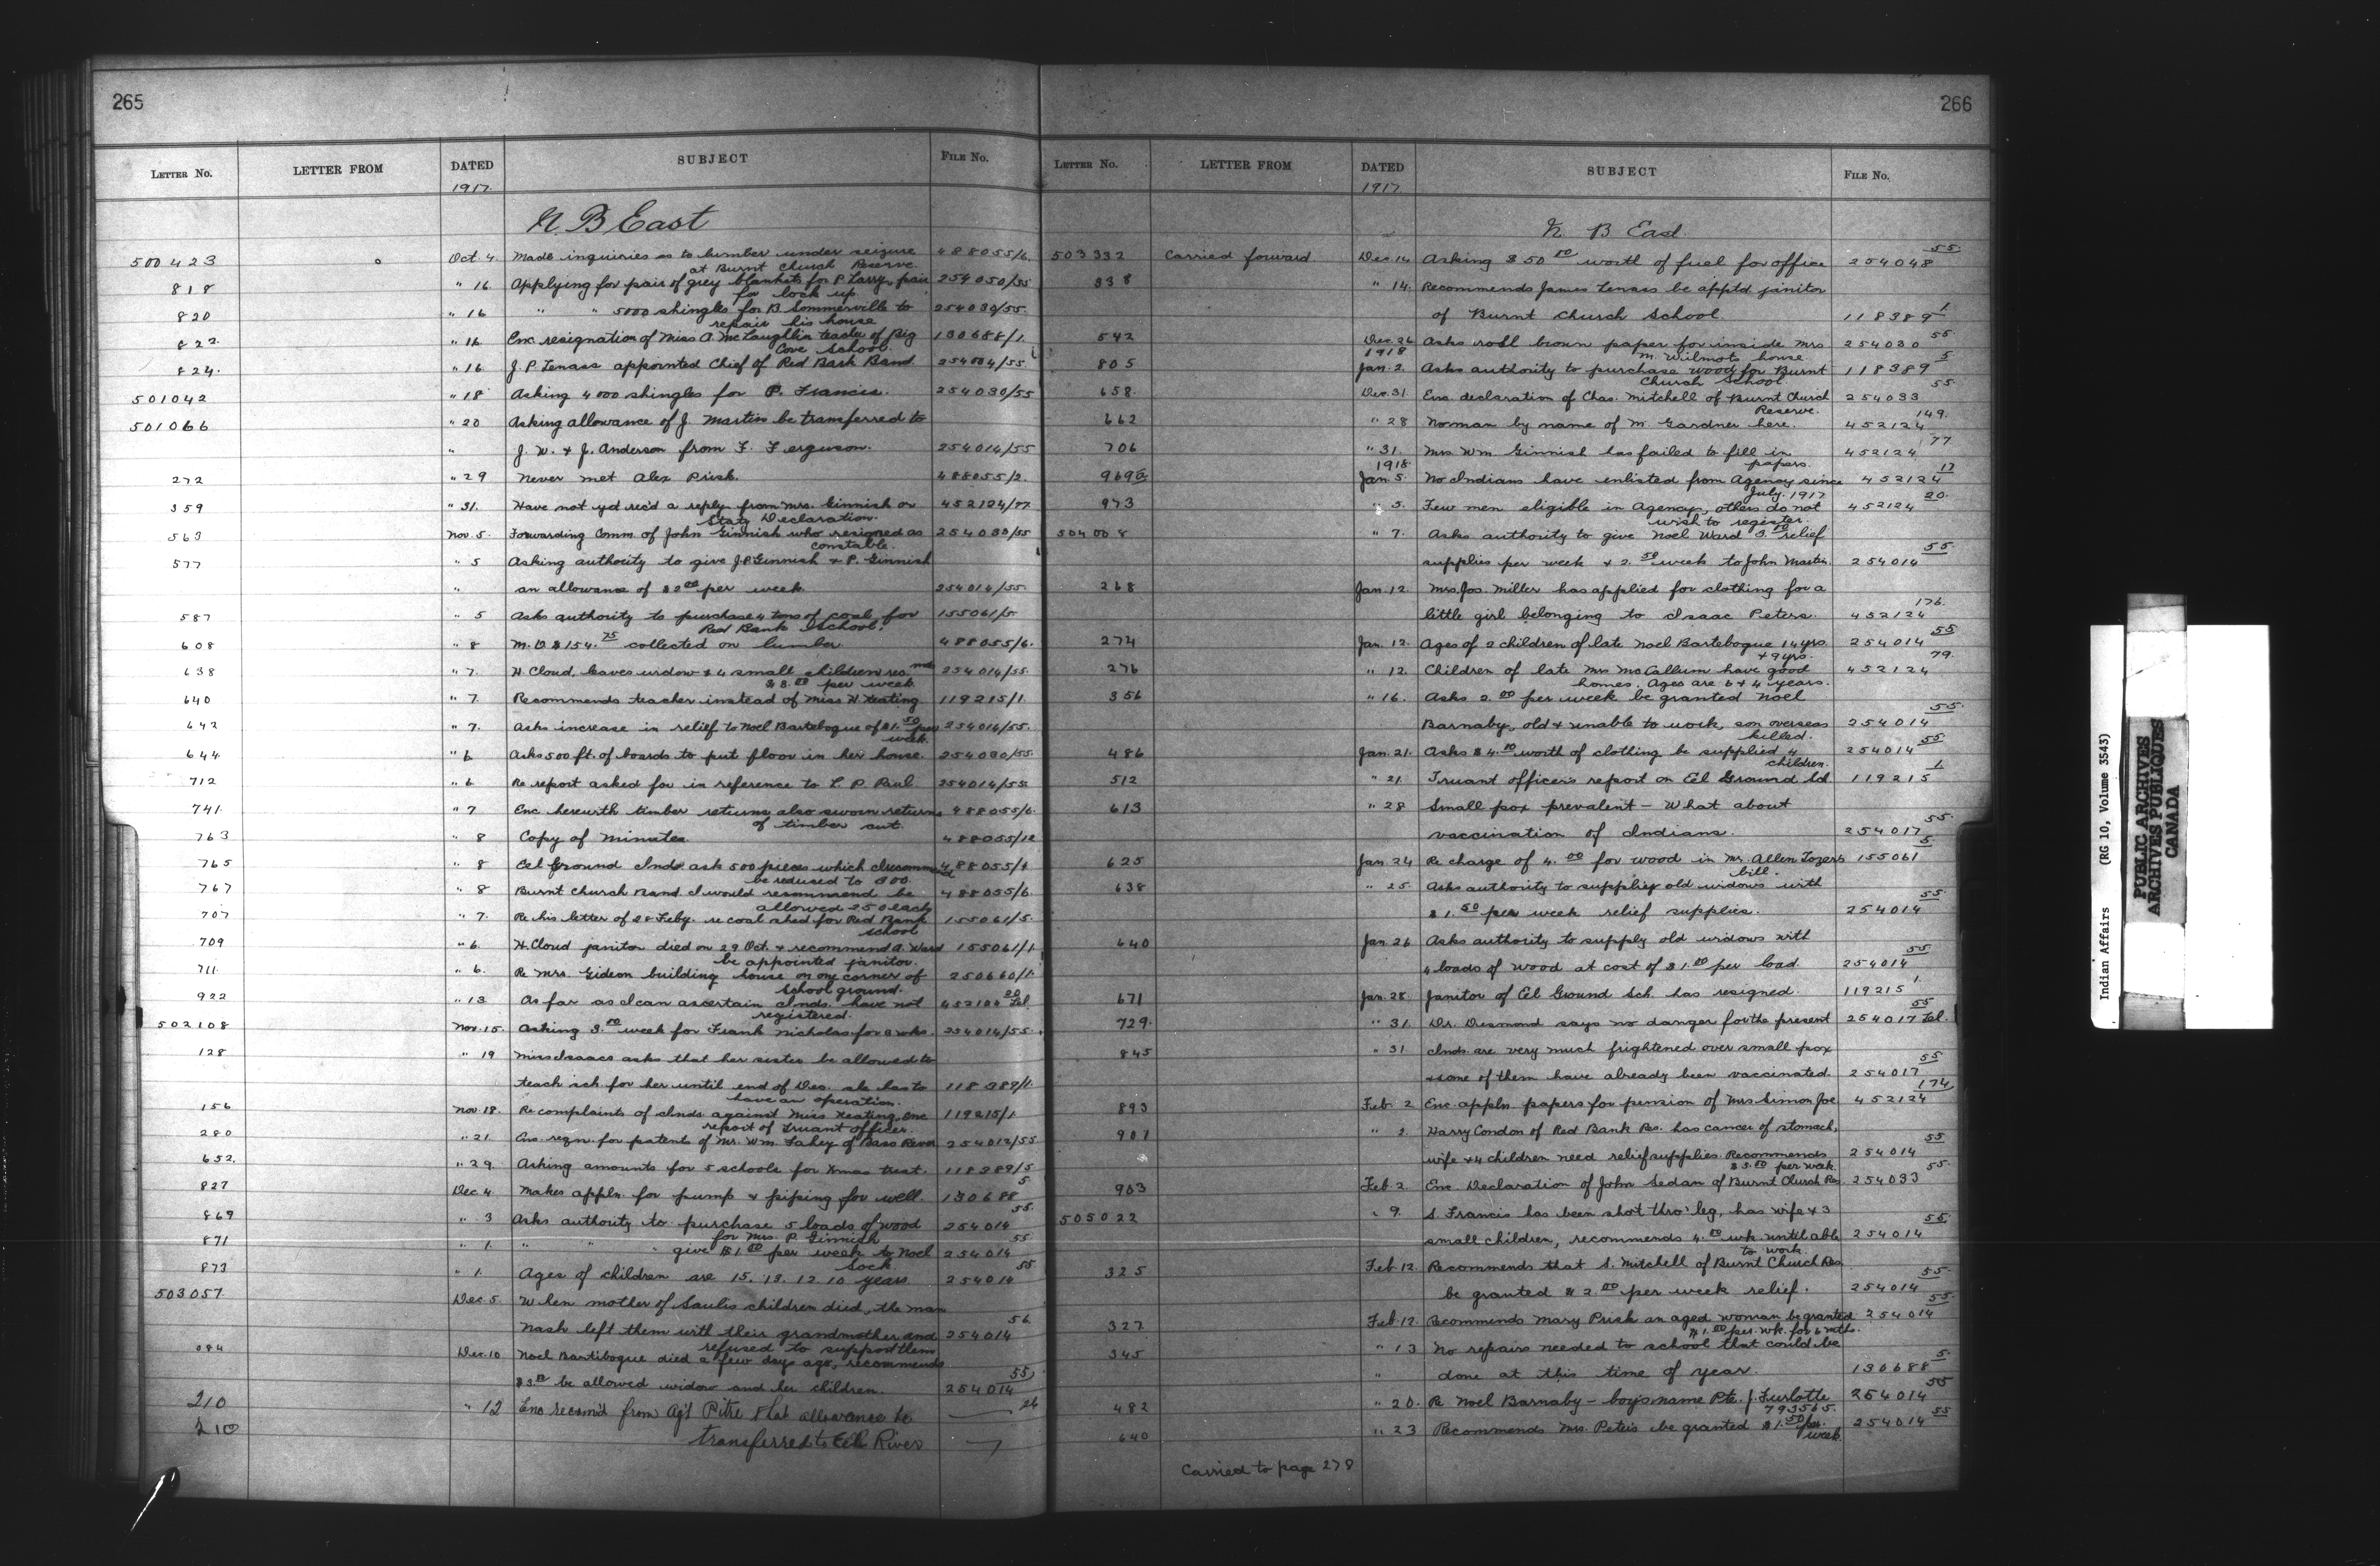 265
LETTER NO. LETTER FROM DATED SUBJECT FILE NO.
1917
N B East
500423 Oct. 4 Made inquiries as to lumber under seizure 488055/6
at Burnt Church Reserve.
818 " 16 Applying for pair of grey blankets for P. Larry, pair 254050/55
for lock up
820 " 16 " " 5000 shingles for B Sommerville to 254030/55
repair his house
822 " 16 Enc. resignation of Miss A. McLaughlin teacher of Big 130688/1
Cove School.
824 " 16 J. P. Tenass appointed Chief of Red Bank Band 254004/55
501042 " 18 Asking 4000 shingles for P. Francis. 254030/55
501066 " 20 Asking allowance of J. Martin be transferred to
" J. W. & J. Anderson from F. Ferguson. 254014/55
272 " 29 Never met Alex Prisk. 488055/2
359 " 31. Have not yet rec'd a reply from Mrs. Ginnish or 452124/77
Staty Declaration.
563 Nov. 5 Forwarding Comm. of John Ginnish who resigned as 254030/55
constable.
577 " 5 Asking authority to give J.P. Ginnish & P. Ginnish
" an allowance of $2.00 per week. 254014/55
587 " 5 Asks authority to purchase 4 tons of coal for 155061/5
Red Bank School.
608 " 8 M.O. $154.75 collected on lumber 488055/6
638 " 7. H. Cloud, leaves widow & 4 small children 254014/55
$3.00 per week
640 " 7. Recommends teacher instead of Miss H. Keating 119215/1
642 " 7. Asks increase in relief to Noel Bartebogue of $1.50 per 254014/55
week.
644 " 6 Asks 500 ft. of boards to put floor in her house. 254030/55
712 " 6 Re report asked for in reference to L. P. Paul 254014/55
741 " 7 Enc herewith timber returns also sworn returns 488055/6
of timber cut.
763 " 8 Copy of Minutes 488055/12
765 " 8 Eel Ground Inds ask 500 pieces which I recommend 488055/4
be reduced to 300
767 " 8 Burnt Church Band I would recommend be 488055/6
allowed 250 each
707 " 7. Re his letter of 28 Feby. re coal shed for Red Bank 155061/5
school
709 " 6. H. Cloud janitor died on 29 Oct. & recommend A. Ward 155061/1
be appointed janitor.
711 " 6. Re Mrs. Gideon building house on one corner of 250660/1
school ground.
922 " 13 As far as I can ascertain Inds. have not 452124 20 Tel.
registered.
502108 Nov. 15. Asking 3.00 week for Frank Nicholas for 3 wks. 254014/55
128 " 19 Miss Isaacs asks that her sister be allowed to
teach sch. for her until end of Dec. she has to 118389/1
have an operation.
156 Nov. 18. Re complaints of Inds. against Miss Keating, Enc 119215/1
report of Truant officer.
280 " 21 Enc. regn. for patents of Mr. Wm. Fahey of Bass River 254012/55
652 " 29 Asking amounts for 5 schools for Xmas treat. 118389/5
827 Dec. 4. Makes appln. for pump & piping for well. 130688 5
869 " 3 Asks authority to purchase 5 loads of wood 254014 55
for Mrs. P. Ginnish
871 " 1. " " " give $1.00 per week to Noel 254014 55
Sock.
873 " 1. Ages of children are 15. 13. 12. 10 years 254014 55
503057 Dec. 5. When mother of Saulis children died, the man
Nash left them with their grandmother and 254014 56
refused to support them
084 Dec. 10 Noel Bartibogue died a few days ago, recommends
$3.00 be allowed widow and her children. 254014 55
210 " 12 Enc recom'd from Ag't Pitre that allowance be 26
210 transferred to Eel River
266
LETTER NO. LETTER FROM DATED SUBJECT FILE NO.
1917
N B East
503332 Carried forward Dec. 14 Asking $50.00 worth of fuel for office 254048 55
338 " 14. Recommends James Tenass be apptd. janitor
of Burnt Church School. 118389 1
542 Dec. 26 Asks roll brown paper for inside Mrs 254030 55
1918 M. Wilmots house
805 Jan. 2. Asks authority to purchase wood for Burnt 118389 5
Church School
658. Dec. 31. Enc. declaration of Chas. Mitchell of Burnt Church 254033 55
Reserve.
662 " 28 No man by name of M. Gardner here. 452124 149.
706 " 31. Mrs Wm Ginnish has failed to fill in 452124 77
1918 papers.
969 Jan. 5. No Indians have enlisted from Agency since 452124 17
July. 1917
973 " 5. Few men eligible in Agency, others do not 452124 20.
wish to register.
504008 " 7. Asks authority to give Noel Ward 3.00 relief
supplies per week & 2.50 week to John Martin. 254014 55
268 Jan. 12. Mrs. Jos. Miller has applied for clothing for a
little girl belonging to Isaac Peters. 452124 176.
274 Jan. 12. Ages of 2 children of late Noel Bartebogue 14 yrs. 254014 55
& 9 yrs.
276 " 12. Children of late Mrs McCallum have good 452124 79.
homes. Ages are 6 & 4 years.
356 " 16. Asks 2.00 per week be granted Noel
Barnaby, old & unable to work, son overseas 254014 55
killed.
486 Jan. 21. Asks $4.00 worth of clothing be supplied 4 254014 55
children.
512 " 21. Truant officer's report on Eel Ground Sch 119215 1.
613 " 28 Small pox prevalent — What about
vaccination of Indians. 254017 55
625 Jan. 24 Re charge of 4.00 for wood in Mr. Allen Tozer's 155061 5
bill.
638 " 25. Asks authority to suppliey old widows with
$1.50 per week relief supplies. 254014 55
640 Jan. 26 Asks authority to supply old widows with
4 loads of wood at cost of $1.00 per load. 254014 55
671 Jan. 28. Janitor of Eel Ground Sch. has resigned. 119215 1.
729. " 31. Dr. Desmond says no danger for the present 254017 55 Tel.
845 " 31 Inds are very much frightened over small pox
& some of them have already been vaccinated. 254017 55
893 Feb. 2 Enc. appln. papers for pension of Mrs Simon Joe 452124 174
901 " 2. Harry Condon of Red Bank Res. has cancer of stomach,
wife & 4 children need relief supplies. Recommends 254014 55
$3.00 per week.
903 Feb 2. Enc. Declaration of John Sedan of Burnt Church Res 254033 55
505022 " 9. S. Francis has been shot thro' leg, has wife & 3
small children, recommends 4.00 wk until able 254014 55
to work.
325 Feb. 12. Recommends that S. Mitchell of Burnt Church Res.
be granted $2.00 per week relief. 254014 55
327 Feb. 12. Recommends Mary Prisk an aged woman be granted 254014 55
$1.00 per. wk. for 6 mths.
345 " 13 No repairs needed to school that could be
" done at this time of year. 130688 5.
482 " 20. Re Noel Barnaby — boy's name Pte. J. Furlotte 254014 55
793565.
640 " 23 Recommends Mrs. Peters be granted $1.50 per 254014 55
week.
Carried to page 278
Indian Affairs (RG 10, Volume 3543)
PUBLIC ARCHIVES
ARCHIVES PUBLIQUES
CANADA